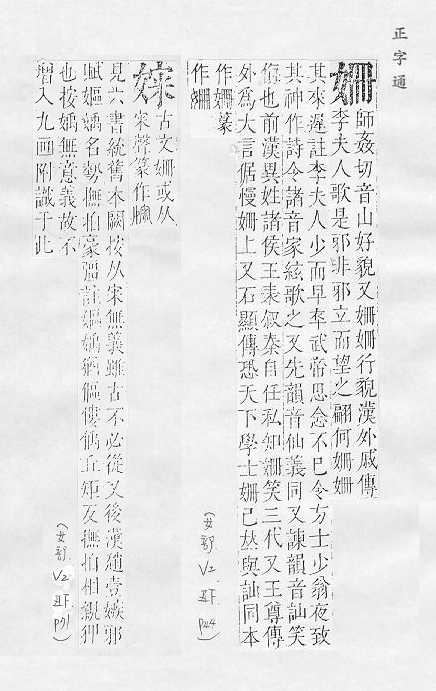 正字通
姍 師姦切音山好貌又姍姍行貌漢外戚傳
李夫人歌是邪非邪立而望之翩何姍姍
其來遲註李夫人少而早卒武帝思念不已令方士少翁夜致
其神作詩令諸音家絃歌之又先韻音仙義同又諫韻音訕笑
侮也前漢異姓諸侯王表叙秦自任私知姍笑三代又王尊傳
外為大言倨慢姍上又石顯傳恐天下學士姍己𠀤與訕同本
作姍篆
作
(女部 V2 丑下 P24)
古文姍或从
宋聲篆作
見六書統舊本闕按从宋無義雖古不必從又後漢趙壹嫉邪
賦嫗媀名勢撫拍豪彊註嫗媀猶傴僂傴丘矩反撫拍相親狎
也按媀無意義故不
增入九画附識于此
(女部 V2 丑下 P91)